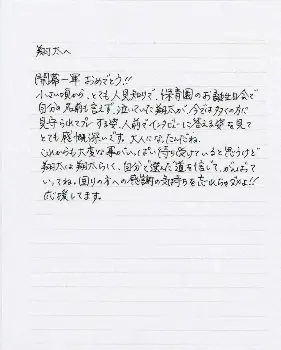 翔太へ
開幕一軍 おめでとう!!
小さい頃から、とても人見知りで、保育園のお誕生日会で
自分の名前も言えず、泣いていた翔太が、今では多くの方に
見守られてプレーする姿、人前でインタビューに答える姿を見て
とても感慨深いです。大人になったんだね。
これからも大変な事がいっぱい待ち受けていると思うけど
翔太は翔太らしく、自分で選んだ道を信じて、がんばって
いってね。回りの方への感謝の気持ちを忘れちゃダメよ!!
応援してます。